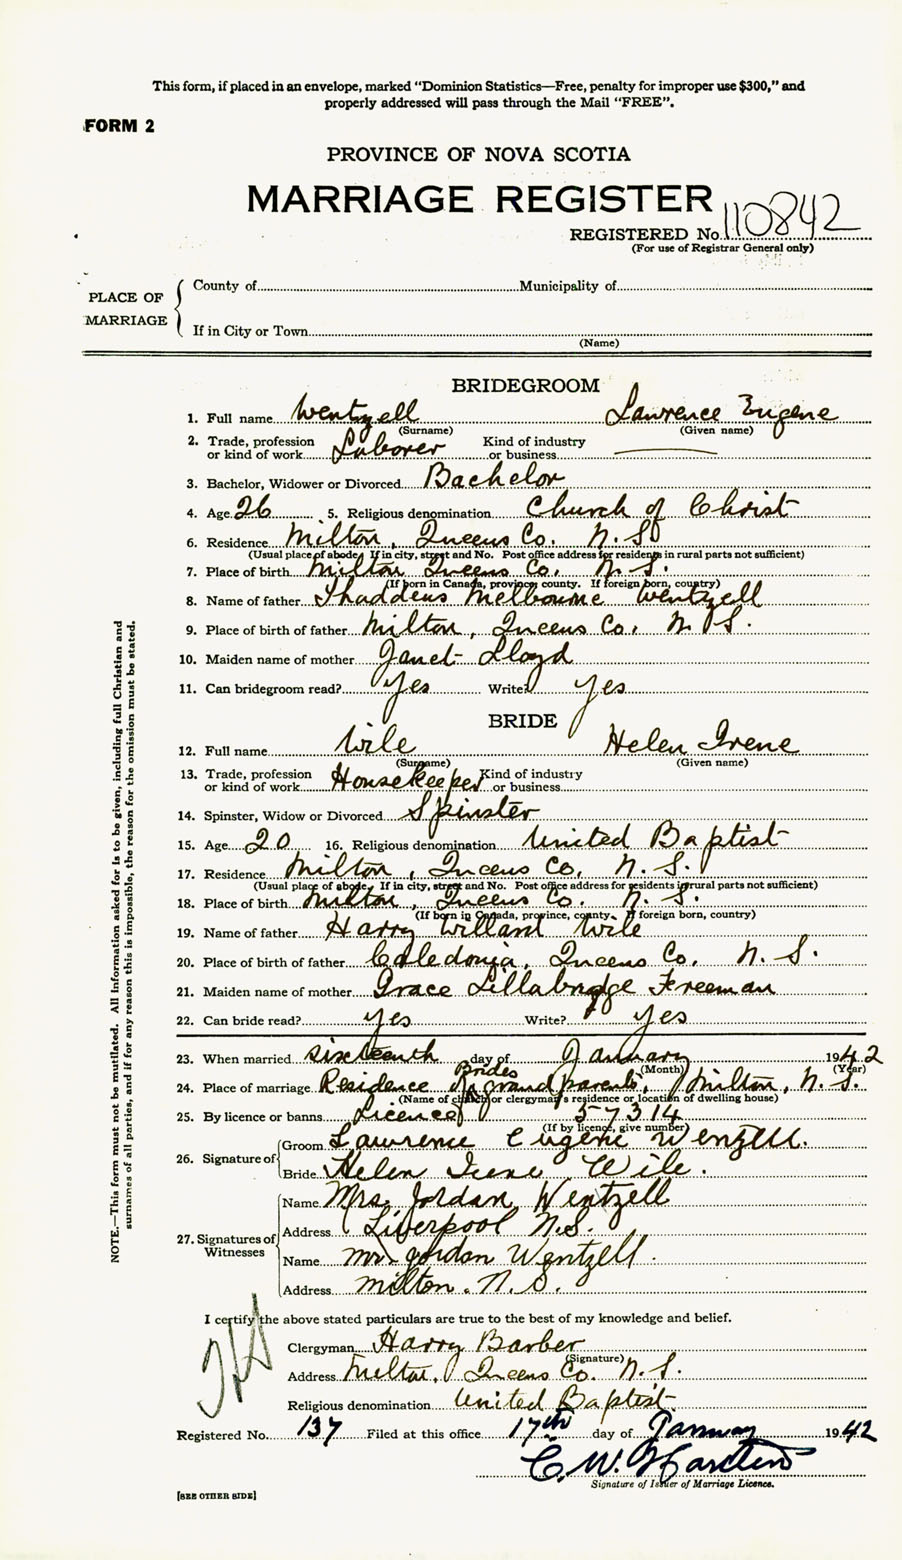 This form, if placed in an envelope, marked "Dominion Statistics—Free, penalty for improper use $300," and
properly addressed will pass through the Mail "FREE".
FORM 2
PROVINCE OF NOVA SCOTIA
MARRIAGE REGISTER
REGISTERED No. 110842
(For use of Registrar General only)
PLACE OF MARRIAGE
County of Municipality of
If in City or Town
(Name)
BRIDEGROOM
1. Full name Wentzell Lawrence Eugene
(Surname) (Given name)
2. Trade, profession or kind of work Laborer Kind of industry or business —
3. Bachelor, Widower or Divorced Bachelor
4. Age 26 5. Religious denomination Church of Christ
6. Residence Milton, Queens Co. N.S.
(Usual place of abode. If in city, street and No. Post office address for residents in rural parts not sufficient)
7. Place of birth Milton Queens Co. N.S.
(If born in Canada, province, county. If foreign born, country)
8. Name of father Thaddeus Melbourne Wentzell
9. Place of birth of father Milton, Queens Co. N.S.
10. Maiden name of mother Janet Lloyd
11. Can bridegroom read? Yes Write? Yes
BRIDE
12. Full name Wile Helen Irene
(Surname) (Given name)
13. Trade, profession or kind of work Housekeeper Kind of industry or business
14. Spinster, Widow or Divorced Spinster
15. Age 20 16. Religious denomination United Baptist
17. Residence Milton, Queens Co. N.S.
(Usual place of abode. If in city, street and No. Post office address for residents in rural parts not sufficient)
18. Place of birth Milton, Queens Co. N.S.
(If born in Canada, province, county. If foreign born, country)
19. Name of father Harry Willard Wile
20. Place of birth of father Caledonia, Queens Co. N.S.
21. Maiden name of mother Grace Lillabridge Freeman
22. Can bride read? Yes Write? Yes
23. When married sixteenth day of January 1942
(Month) (Year)
24. Place of marriage Residence of Brides grandparents, Milton, N.S.
(Name of church or clergyman's residence or location of dwelling house)
25. By licence or banns Licence 57314
(If by licence, give number)
26. Signature of
Groom Lawrence Eugene Wentzell.
Bride Helen Irene Wile.
27. Signatures of Witnesses
Name Mrs. Jordan Wentzell
Address Liverpool N.S.
Name Mr. Jordan Wentzell.
Address Milton. N.S.
I certify the above stated particulars are true to the best of my knowledge and belief.
Clergyman Harry Barber
(Signature)
Address Milton, Queens Co. N.S.
Religious denomination United Baptist
Registered No. 137 Filed at this office 17th day of January 1942
C. W.
Signature of Issuer of Marriage Licence.
[SEE OTHER SIDE]
NOTE.—This form must not be mutilated. All information asked for is to be given, including full Christian and
surnames of all parties, and if for any reason this is impossible, the reason for the omission must be stated.